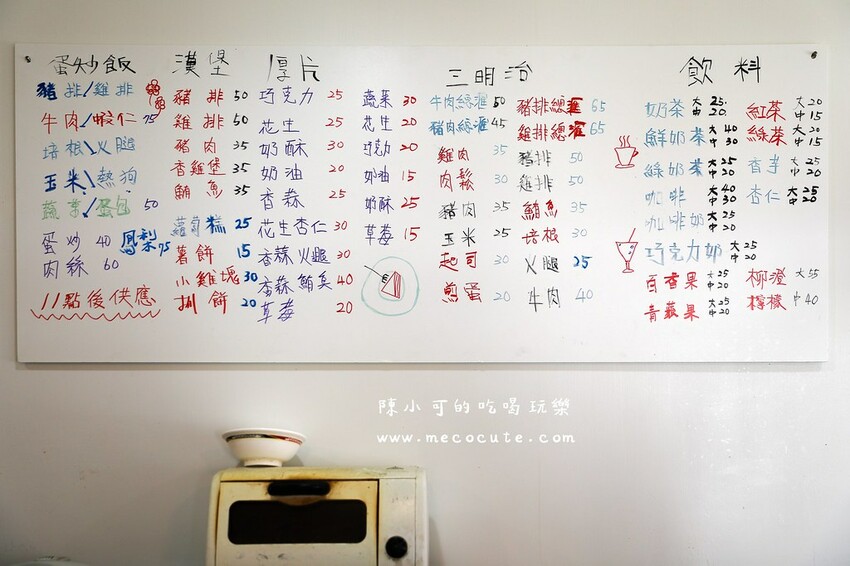 蛋炒飯
豬排/雞排
牛肉/蝦仁 75
培根/火腿
玉米/熱狗
蔬菜/蛋包 50
蛋炒 40
鳳梨 75
肉絲 60
11點後供應
漢堡
豬排 50
雞排 50
豬肉 35
香雞堡 35
鮪魚 35
蘿蔔糕 25
薯餅 15
小雞塊 30
捌餅 20
厚片
巧克力 25
花生 25
奶酥 30
奶油 20
香蒜 25
花生杏仁 30
香蒜火腿 30
香蒜鮪魚 40
草莓 20
蔬果 30
花生 20
巧克力 20
奶油 15
奶酥 25
草莓 15
三明治
牛肉總滙 50
豬肉總滙 45
雞肉 35
肉鬆 30
豬肉 35
玉米 25
起司 30
煎蛋 20
豬排總滙 65
雞排總滙 65
豬排 50
雞排 50
鮪魚 35
培根 30
火腿 25
牛肉 40
飲料
奶茶 大25 中20
鮮奶茶 大40 中30
綠奶茶 大25 中20
咖啡 大40 中30
咖啡奶 大25 中20
巧克力奶 大25 中20
百香果 大25 中20
青蘋果 大25 中20
紅茶 大20 中15
綠茶 大20 中15
香芋 大25 中20
杏仁 大25 中20
柳橙 大55
檸檬 中40
陳小可的吃喝玩樂
www.mecocute.com